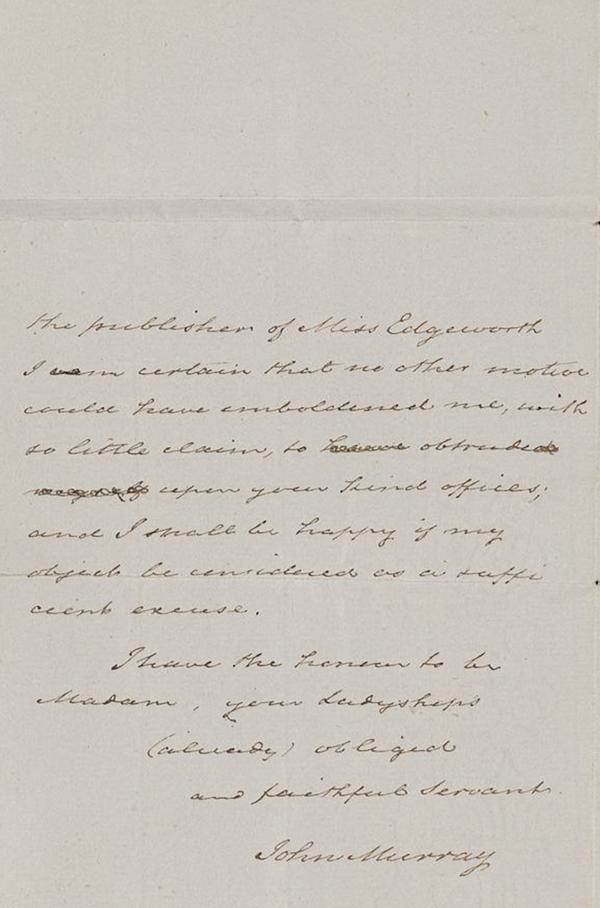 the publisher of Miss Edgeworth
I am certain that no other motive
could have emboldened me, with
so little claim, to have obtruded
myself upon your kind offices;
and I shall be happy if my
object be considered as a suffi
cient excuse.
I have the honour to be
Madam, your Ladyship's
(already) obliged
and faithful Servant
John Murray